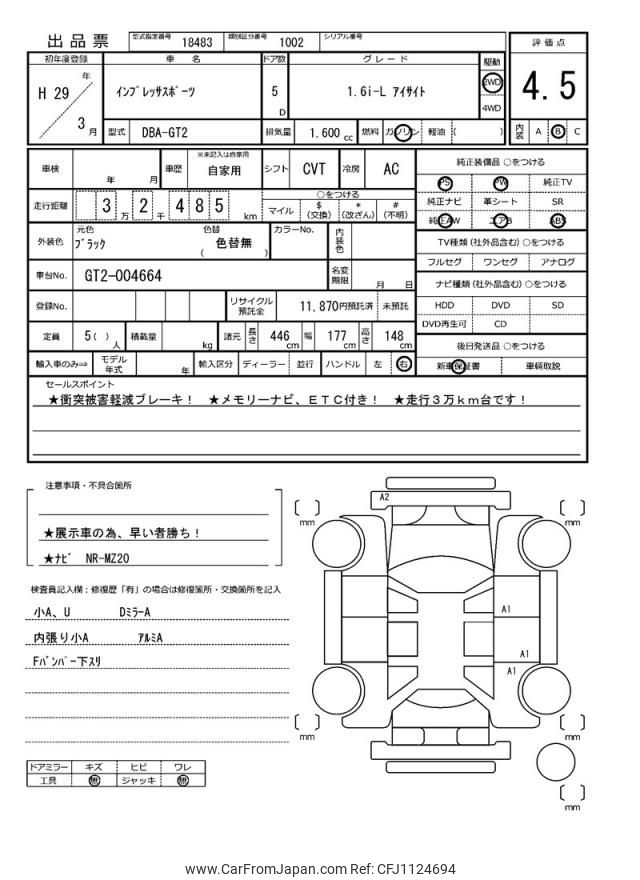 出品票 型式指定番号 18483 類別区分番号 1002 シリアル番号
初年度登録 車 名 ドア数 グレード 駆動 評価点
H 29 年 3 月 インプレッサスポーツ 5 D 1.6i-L アイサイト 2WD 4WD 4.5
型式 DBA-GT2 排気量 1.600 cc 燃料 ガソリン 軽油 ( ) 内装 A B C
車検 年 月 車歴 ※未記入は自家用 自家用 シフト CVT 冷房 AC 純正装備品 ○をつける
PS PW 純正TV
走行距離 3 万 2 千 4 8 5 km ○をつける マイル $ (交換) * (改ざん) # (不明) 純正ナビ 革シート SR
純正AW エアB ABS
外装色 元色 ブラック 色替 色替無 ( ) カラーNo. 内装色 TV種類 (社外品含む) ○をつける
フルセグ ワンセグ アナログ
車台No. GT2-004664 名変期限 月 日 ナビ種類 (社外品含む) ○をつける
登録No. リサイクル預託金 11,870円預託済 未預託 HDD DVD SD
DVD再生可 CD
定員 5 ( ) 人 積載量 kg 諸元 長さ 446 cm 幅 177 cm 高さ 148 cm 後日発送品 ○をつける
輸入車のみ⇒ モデル年式 年 輸入区分 ディーラー 並行 ハンドル 左 右 新車保証書 車輌取説
セールスポイント
★衝突被害軽減ブレーキ! ★メモリーナビ、ETC付き! ★走行3万km台です!
注意事項・不具合箇所
★展示車の為、早い者勝ち!
★ナビ NR-MZ20
検査員記入欄:修復歴「有」の場合は修復箇所・交換箇所を記入
小A、U DミラーA
内張り小A アルミA
Fバンパー下スリ
ドアミラー キズ ヒビ ワレ
工具 無 ジャッキ 無
A2
mm mm
A1
A1
A1
mm mm
mm
www.CarFromJapan.com Ref: CFJ1124694